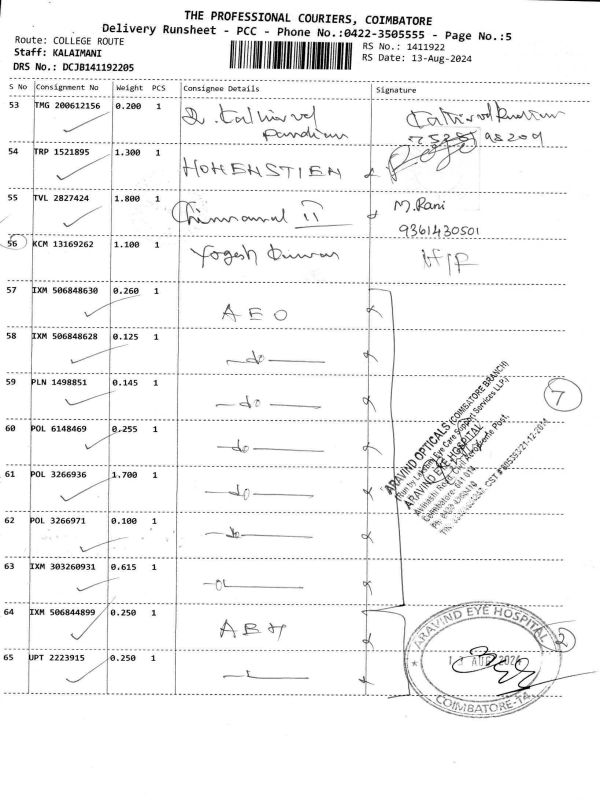 THE PROFESSIONAL COURIERS, COIMBATORE
Delivery Runsheet - PCC - Phone No.:0422-3505555 - Page No.:5
Route: COLLEGE ROUTE
Staff: KALAIMANI
DRS No.: DCJB141192205
RS No.: 1411922
RS Date: 13-Aug-2024
S No Consignment No Weight PCS Consignee Details Signature
53 TMG 200612156 0.200 1
54 TRP 1521895 1.300 1 HOHENSTIEN
55 TVL 2827424 1.800 1 M. Rani
9361430501
56 KCM 13169262 1.100 1 Yogesh Kumar
57 IXM 506848630 0.260 1 AEO
58 IXM 506848628 0.125 1 do
59 PLN 1498851 0.145 1 do
60 POL 6148469 0.255 1 do
61 POL 3266936 1.700 1 do
62 POL 3266971 0.100 1 do
63 IXM 303260931 0.615 1
64 IXM 506844899 0.250 1 ABH
65 UPT 2223915 0.250 1
7
ARAVIND OPTICALS (COIMBATORE BRANCH)
ARAVIND EYE HOSPITAL
Coimbatore- 641 014
2
ARAVIND EYE HOSPITAL
AUG 2024
COIMBATORE-14